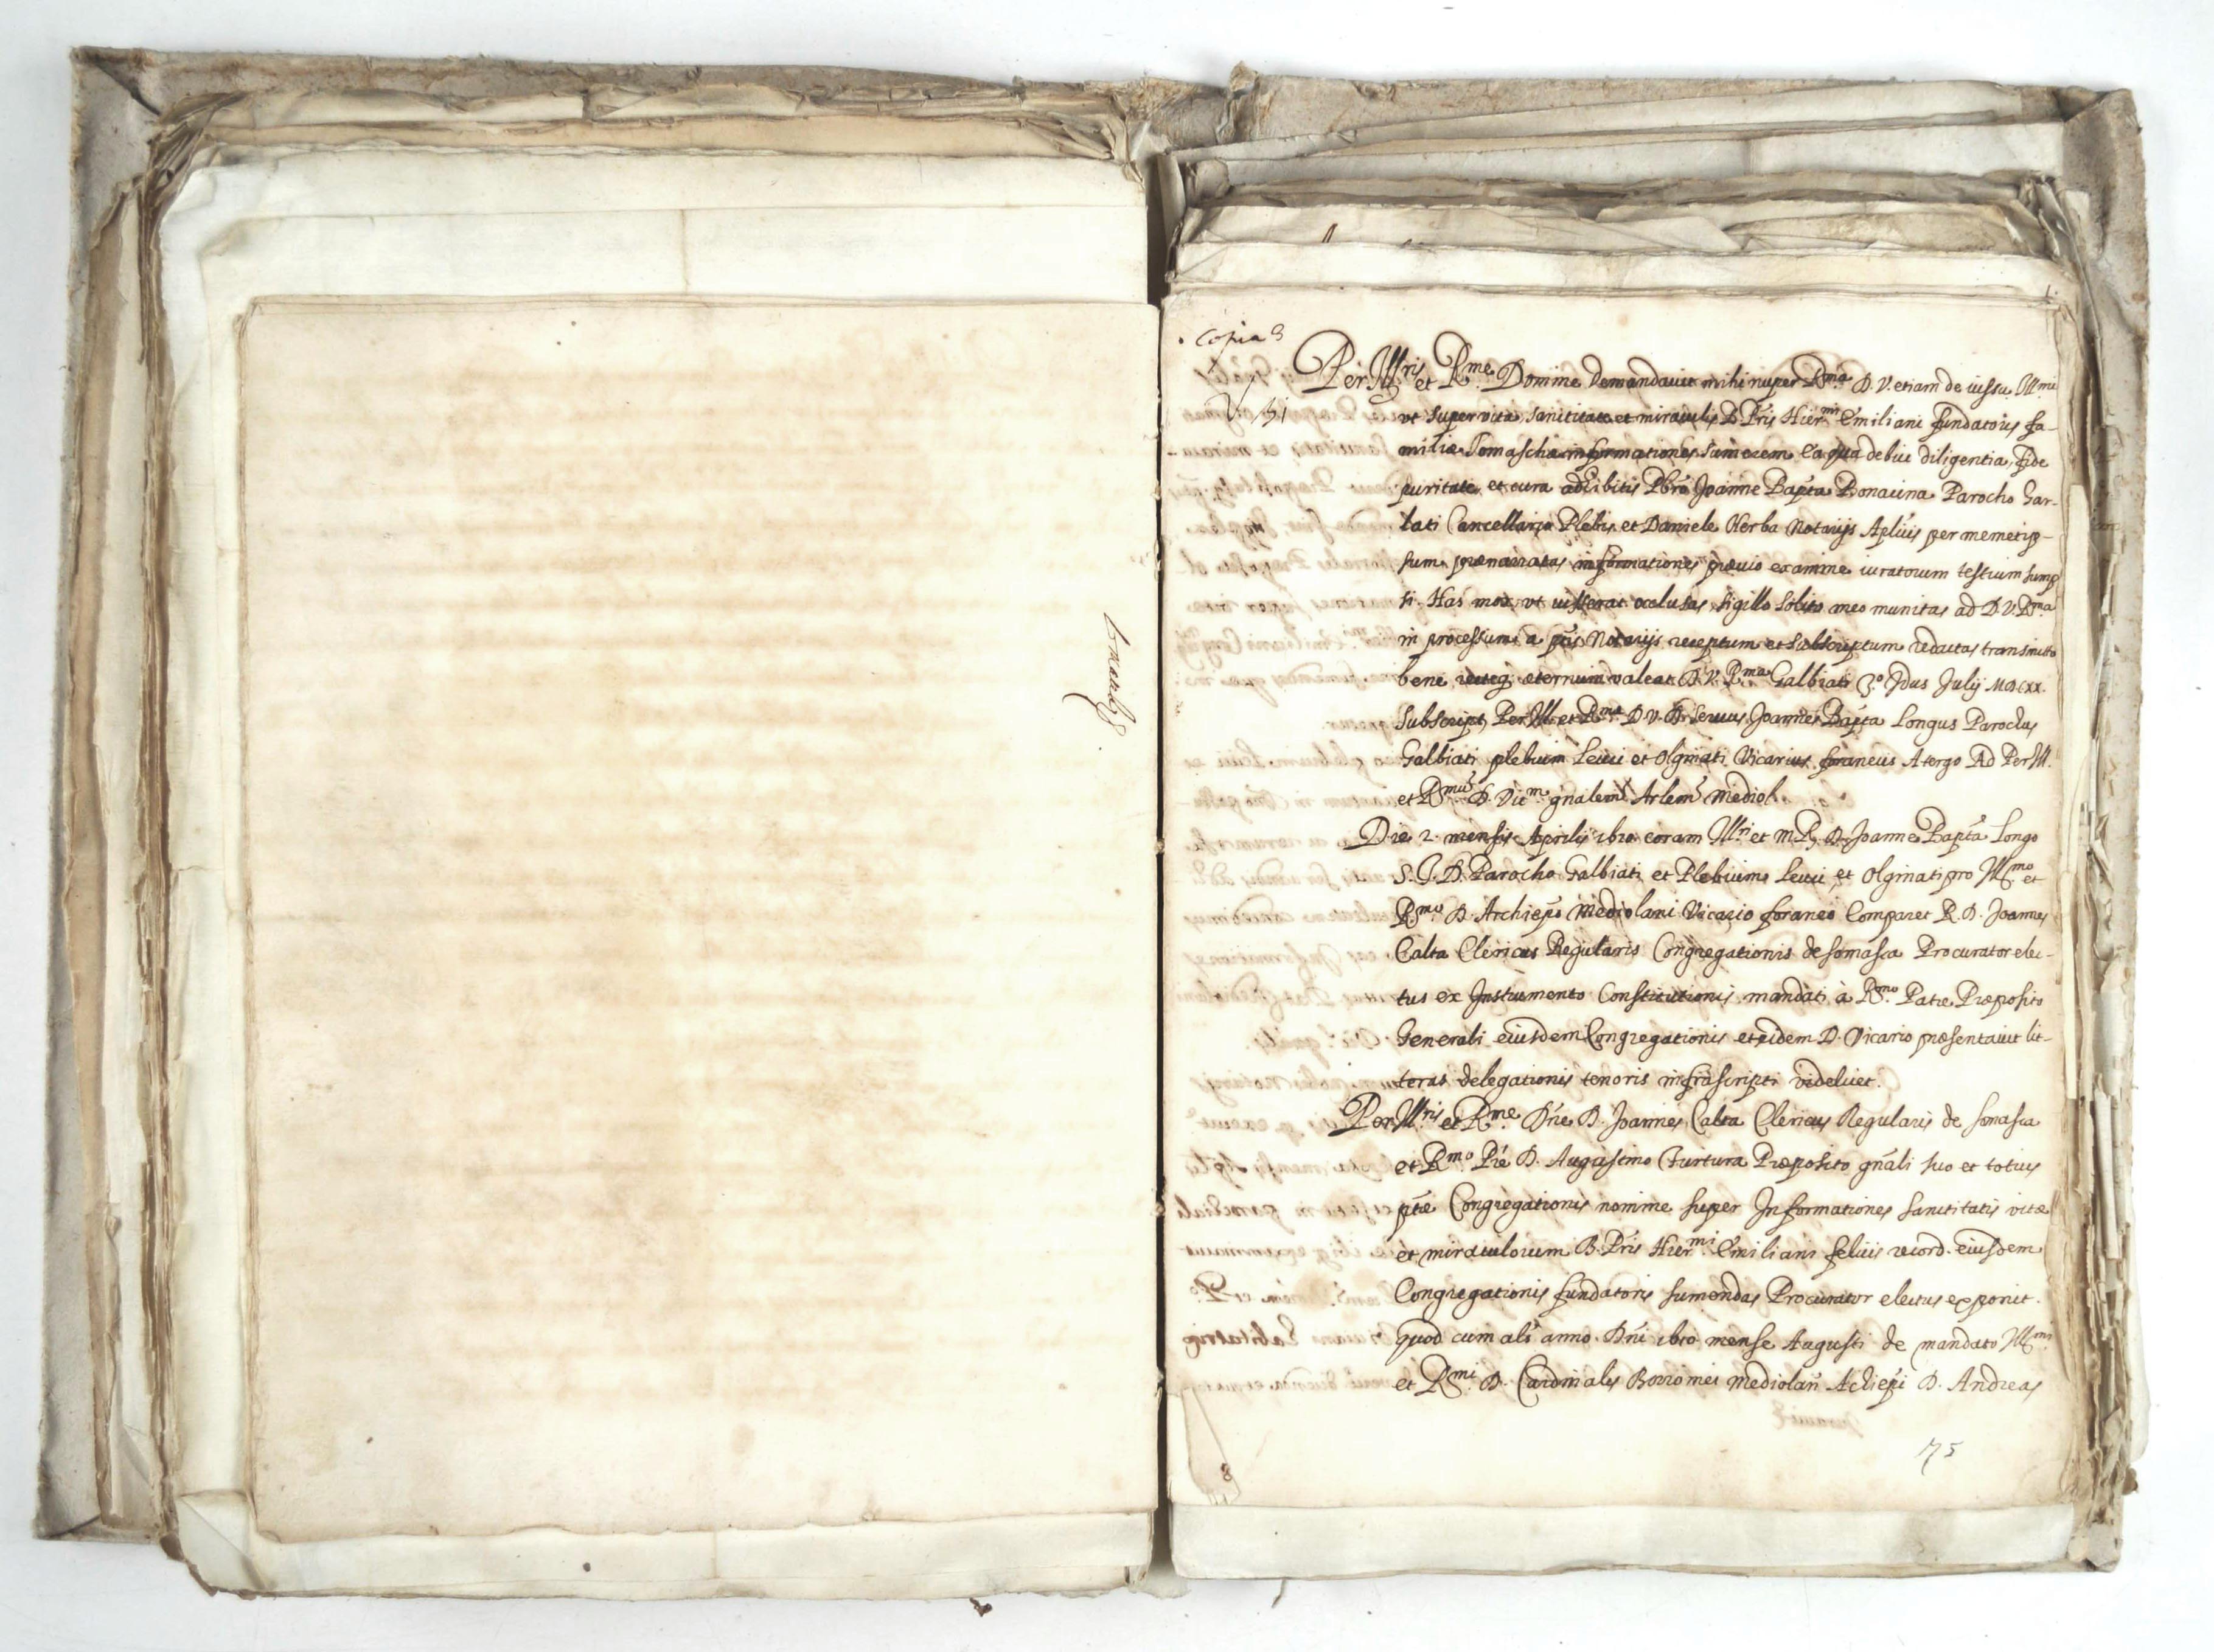 Copia
Per Ill.ris et R.me Domine Demandavit mihi nuper R.ma D. V. etiam de iussu Ill.mi
vt super vita, sanctitate et miraculis B. Pris Hier.mi Emiliani fundatoris fa-
miliæ Somaschæ informationes sumerem. Ea qua debui diligentia, fide
puritate et cura adhibitis Pbro Joanne Bapta Bonacina Parocho Gar-
lati Cancellario Plebis et Daniele Herba Notarijs Aplicis per memetip-
sum prænarratas informationes præuio examine iuratorum testium sump
si. Has mox vt iusserat oclusas sigillo solito meo munitas ad D. V. R.ma
in processum a ptis Notarijs receptum et subscriptum redactas transmitto
bene æternum valeat D. V. R.ma Galbiati 3.o Idus Julij MDCXX.
Subscript. Per Ill. et R.ma D. V. Seruus Joannes Bapta Longus Parochus
Galbiati plebium Leuci et Olginati Vicarius foraneus Atergo Ad Per Ill.
et R.mu D. Vic.m gnalem Arlem Mediol.
Die 2. mensis Aprilis coram Ill.ri et m. R. D. Joanne Bapta Longo
S. T. D. Parocho Galbiati et Plebium Leuci et Olginati pro Ill.mo et
R.mo D. Archiepo Mediolani Vicario foraneo Comparet R. D. Joannes
Calta Clericus Regularis Congregationis de somasca Procurator elec-
tus ex Instrumento Constitutionis mandati à R.mo Patre Præposito
Generali eiusdem Congregationis et eidem D. Vicario præsentauit lit-
teras delegationis tenoris infrascripti videlicet.
Per Ill.ris et R.me Dne D. Joannes Calta Clericus Regularis de somasca
et R.mo Pre D. Augustino Præposito gnali suo et totius
ptæ Congregationis nomine super Informationes sanctitatis vitæ
et miraculorum B. Pris Hier.mi Emiliani felicis record. eiusdem
Congregationis fundatoris sumendas Procurator electus exponit.
quod cum als anno Dni mense Augusti de mandato Ill.mi
et R.mi D. Cardinalis Borromei Mediolan Achiepi D. Andreas
75
8